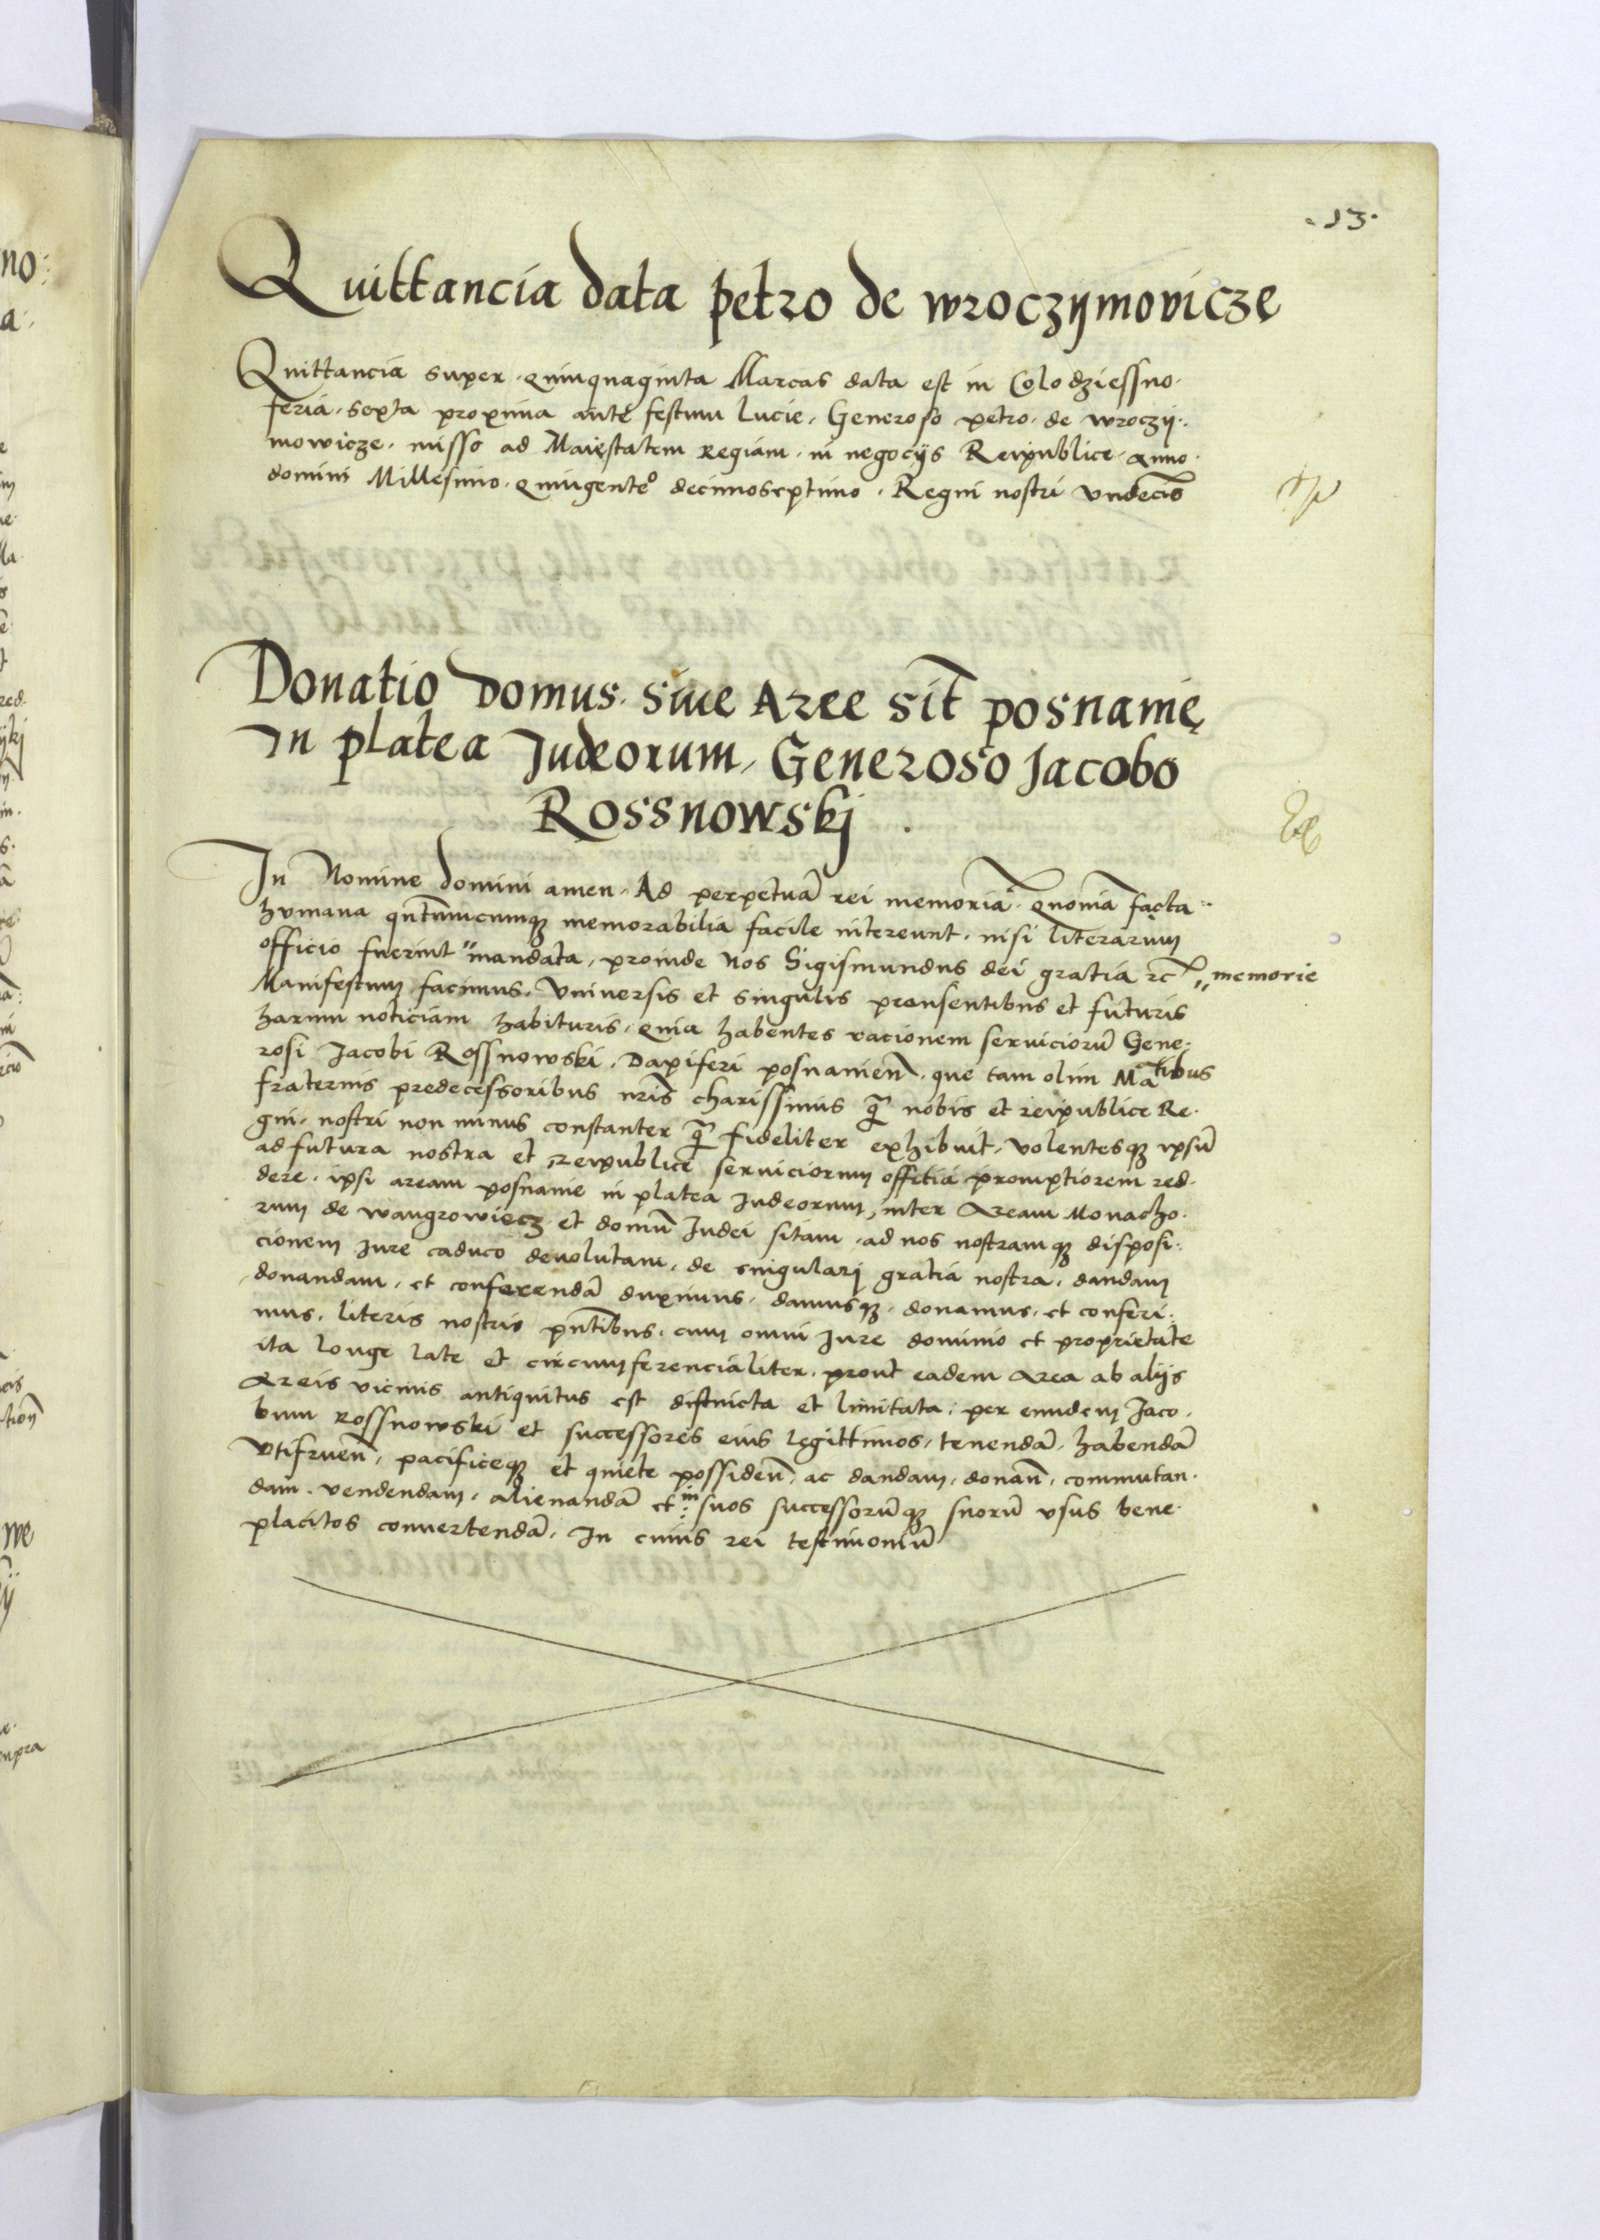 .13.
Quittancia data petro de wroczÿmoviczę
Quittancia super. quinquaginta Marcas data est in Colodziessno.
feria. sexta proxima antę festum lucie. Generoso petro. de wroczÿ.
mowicze. misso ad Maięstatem regiam. in negocijs Reipublice. anno.
domini Millesimo. quingentº decimoseptimo. Regni nostri vndecīo
Donatio domus. siue Aree sit̄ posnanię
In platea Iudeorum, Generoso Jacobo
Rossnowskj.
In Nomine domini amen. Ad perpetuā rei memoriā. quoniā facta.
humana qn̄tumcumqȝ memorabilia facile intereunt. nisi literarum
officio fuerint "mandata, proinde nos Sigismundus dei gratia ꝛc̄ "memorie
Manifestum facimus. Vniuersis et singulis praesentibus et futuris
harum noticiam habituris. quia habentes racionem seruiciorū Gene.
rosi Jacobi Rossnowski. Dapiferi posnanien̄. que tam olim Māᵗⁱᵇᵘˢ
fraternis predecessoribus nr̄is charissimis q̄ nobis et reipublice Re.
gni. nostri non minus constanter q̄ fideliter exhibuit. volentesqȝ ipsū
ad futura nostra et reipublice seruiciorum offitia promptiorem red.
dere. ipsi aream posnanie in platea Iudeorum, inter aream Monacho.
rum de wangrowiecz et domū Iudei sitam. ad nos nostramqȝ disposi.
cionem jure caduco deuolutam. de singularj gratia nostra. dandam
donandam. et conferendā duximus. damusqȝ. donamus. et conferi.
mus. literis nostris pn̄tibus. cum omni jure dominio et proprietate
ita longe late et circumferencialiter. prout eadem area ab alijs
areis vicinis antiquitus est distincta et limitata. per eundem Jaco.
bum rossnowski et successores eius lęgittimos, tenendā. habendā
vtifruen̄. pacificeqȝ et quiete possiden̄. ac dandam. donan̄. commutan.
dam. vendendam. alienandā et in suos successorūqȝ suorū vsus bene.
placitos conuertendā. In cuius rei testimoniū